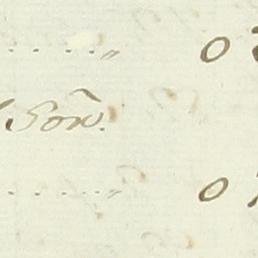 . . . . „ 0
Son̄.
. . . . „ 0